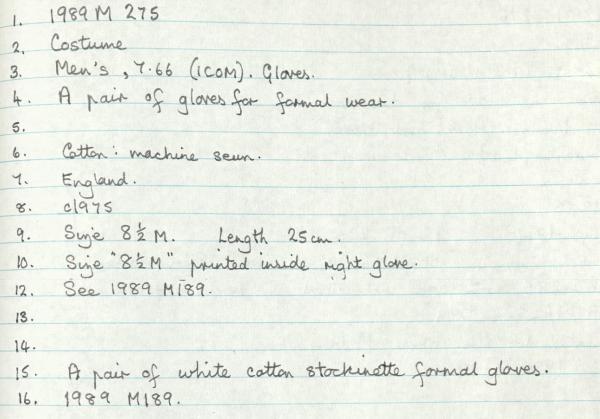 1. 1989 M 275
2. Costume
3. Men's, 7.66 (ICOM). Gloves.
4. A pair of gloves for formal wear.
5.
6. Cotton: machine sewn.
7. England.
8. c1975
9. Size 8½ M. Length 25cm.
10. Size "8½ M" printed inside right glove.
12. See 1989 M189.
13.
14.
15. A pair of white cotton stockinette formal gloves.
16. 1989 M189.